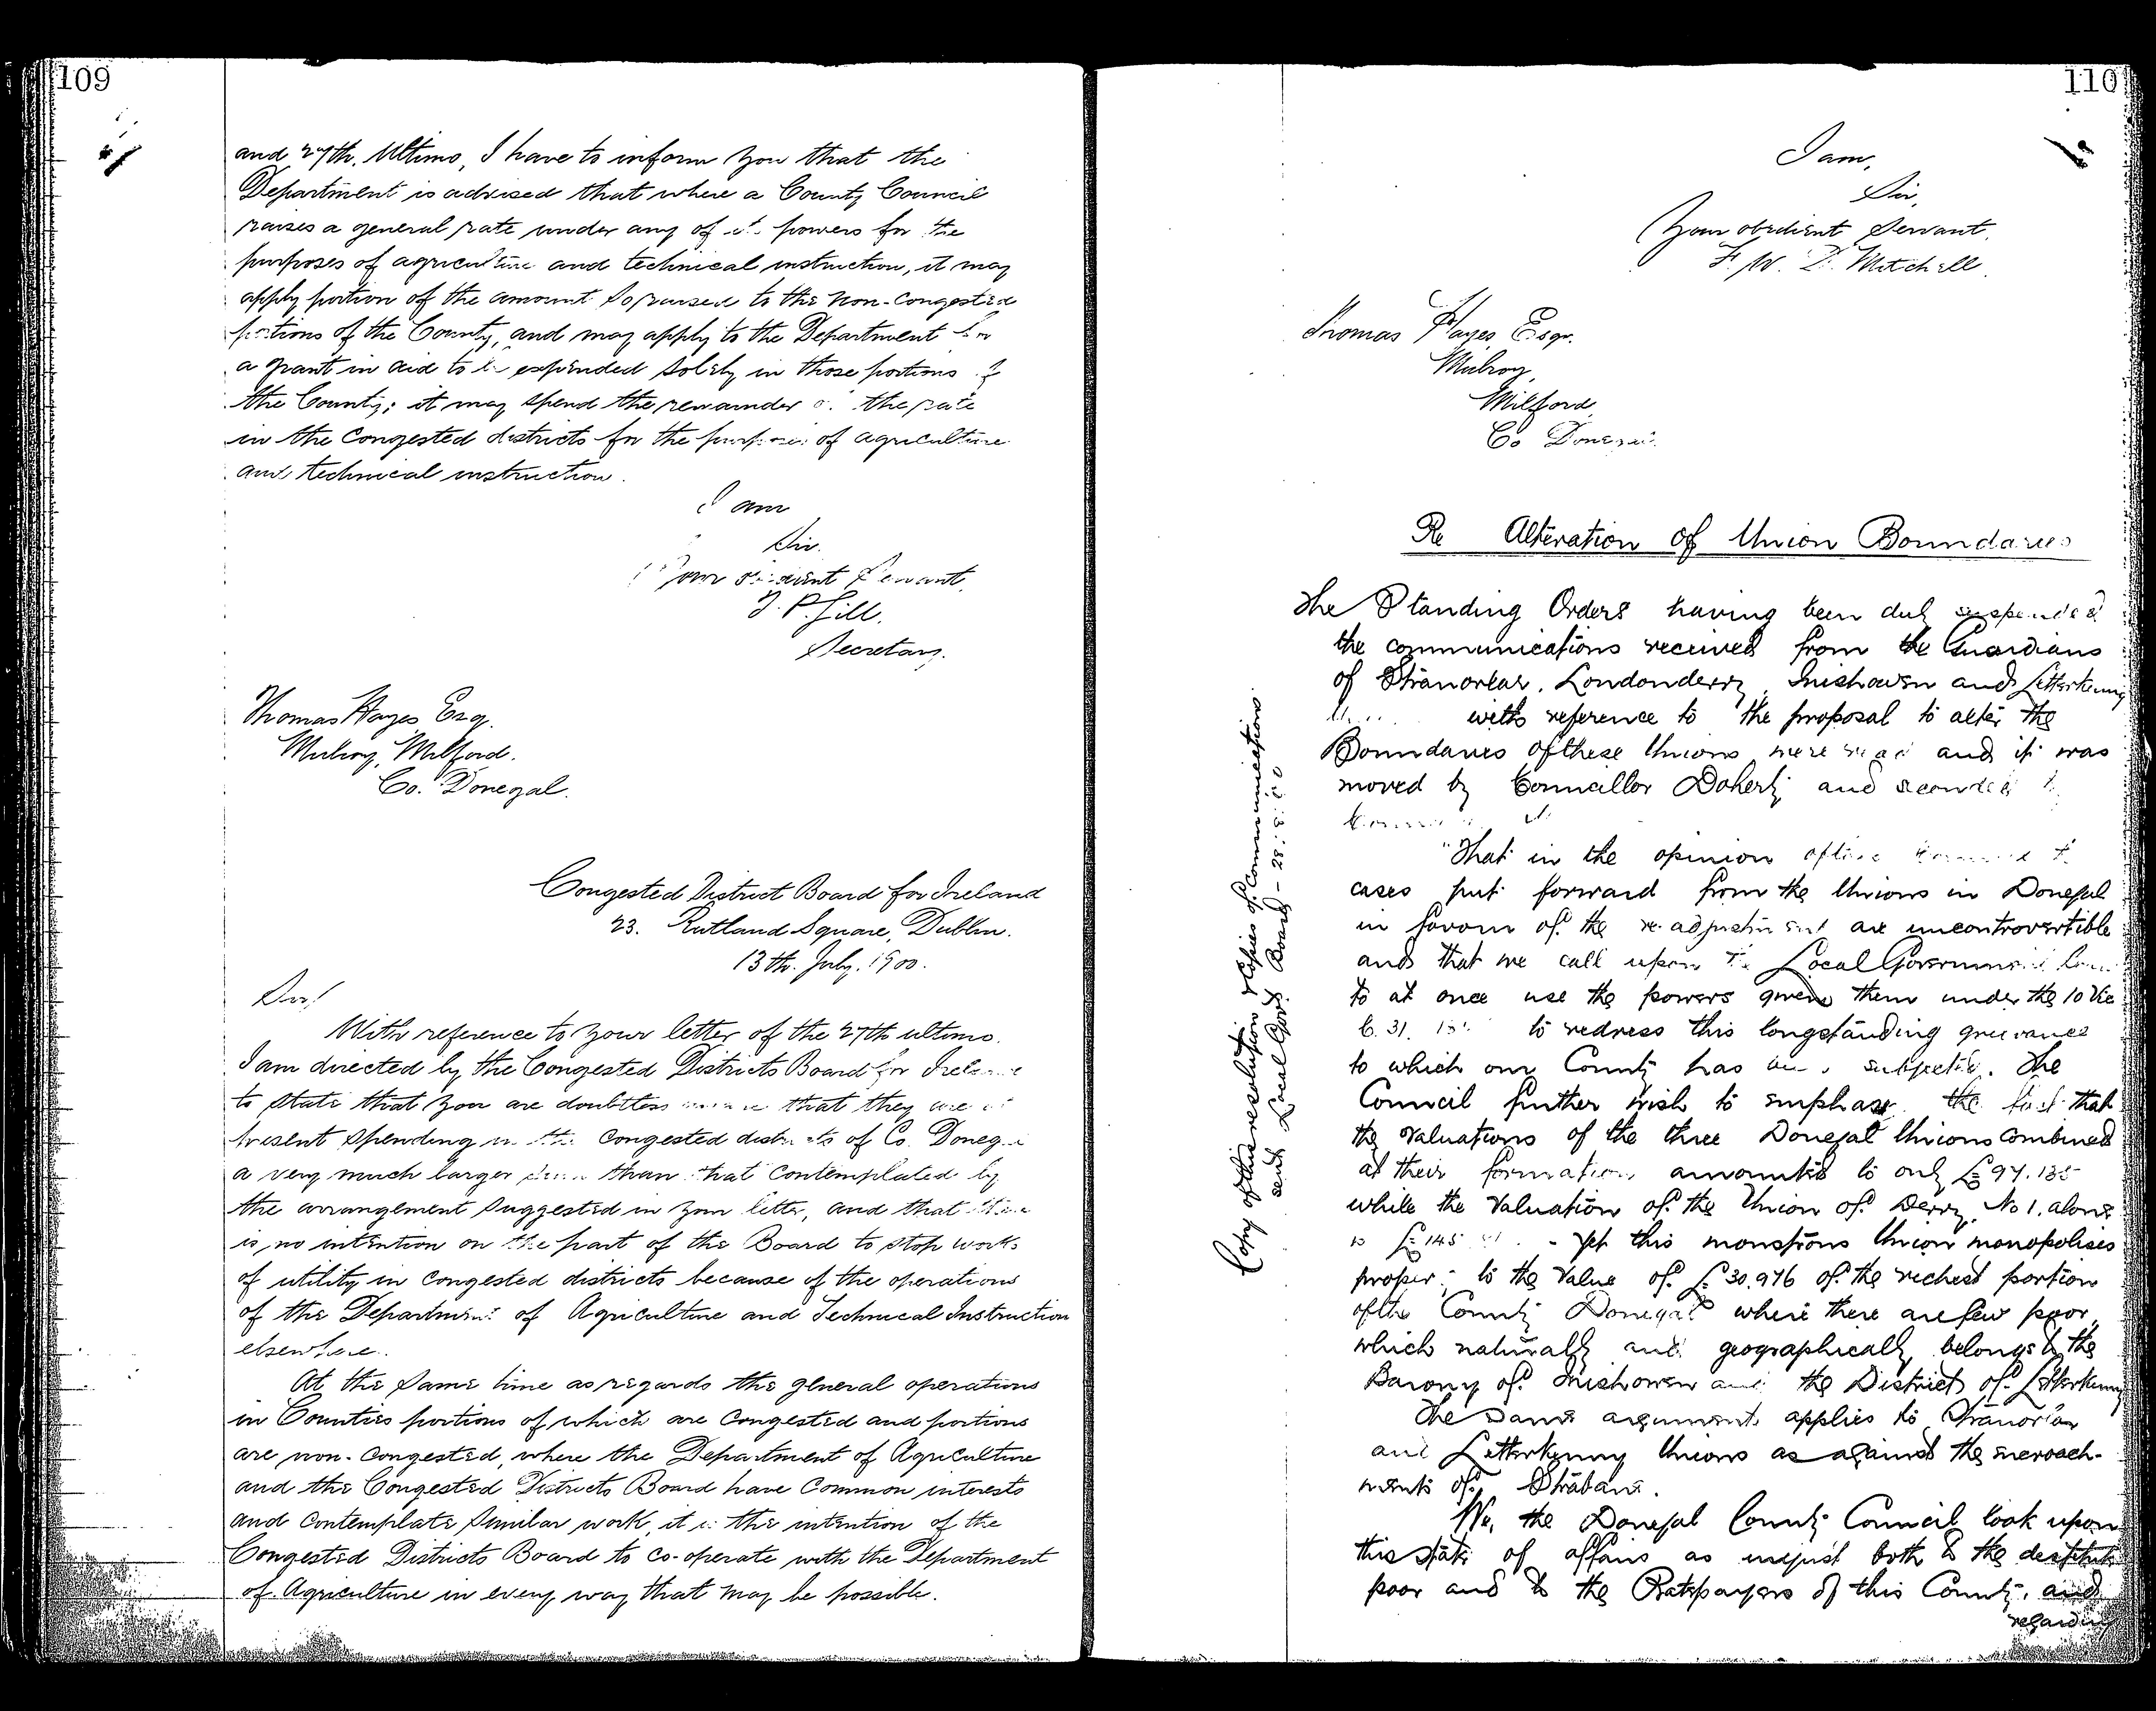 109
and 27th. Ultimo, I have to inform you that the
Department is advised that where a County Council
raises a general rate under any of its powers for the
purposes of agriculture and technical instruction, it may
apply portion of the amount so raised to the non-congested
portions of the County, and may apply to the Department for
a grant in aid to be expended solely in those portions of
the County; it may spend the remainder of the rate
in the congested districts for the purposes of agriculture
and technical instruction.
I am
Sir.
Your obedient Servant,
T. P. Gill.
Secretary.
Thomas Hayes Esq.
Mulroy, Milford.
Co. Donegal.
Congested District Board for Ireland
23. Rutland Square, Dublin.
13th. July. 1900.
Sir!
With reference to your letter of the 27th ultimo.
I am directed by the Congested Districts Board for Ireland
to state that you are doubtless aware that they are at
present spending in the congested districts of Co. Donegal
a very much larger sum than that contemplated by
the arrangement suggested in your letter, and that there
is no intention on the part of the Board to stop works
of utility in congested districts because of the operations
of the Department of Agriculture and Technical Instruction
elsewhere.
At the same time as regards the general operations
in Counties portions of which are congested and portions
are non-congested, where the Department of Agriculture
and the Congested Districts Board have common interests
and contemplate similar work, it is the intention of the
Congested Districts Board to co-operate with the Department
of Agriculture in every way that may be possible.
110
I am,
Sir,
Your obedient Servant,
F. W. D. Mitchell.
Thomas Hayes, Esqr.
Mulroy,
Milford,
Co Donegal.
Re Alteration of Union Boundaries
The Standing Orders having been duly suspended
the communications received from the Guardians
of Stranorlar, Londonderry, Inishowen and Letterkenny
with reference to the proposal to alter the
Boundaries of these Unions were read and it was
moved by Councillor Doherty and seconded by
"That in the opinion of this Council the
cases put forward from the Unions in Donegal
in favour of the re-adjustment are uncontrovertible
and that we call upon the Local Government Board
to at once use the powers given them under the 10 Vic
C. 31. to redress this longstanding grievance
to which our County has been subjected. The
Council further wish to emphase the fact that
the valuations of the three Donegal Unions combined
at their formation amounted to only £97.135
while the Valuation of the Union of Derry No 1. alone
is £145 - Yet this monstrous Union monopolises
property to the Value of £30,976 of the richest portion
of the County Donegal where there are few poor,
which naturally and geographically belongs to the
Barony of Inishowen and the District of Letterkenny
The same arguments applies to Stranorlar
and Letterkenny Unions as against the encroach-
ments of Strabane.
We, the Donegal County Council look upon
this state of affairs as unjust both to the destitute
poor and to the Ratepayers of this County, and
regarding
Copy of this resolution & copies of communications
sent Local Govt. Board - 28.8.00